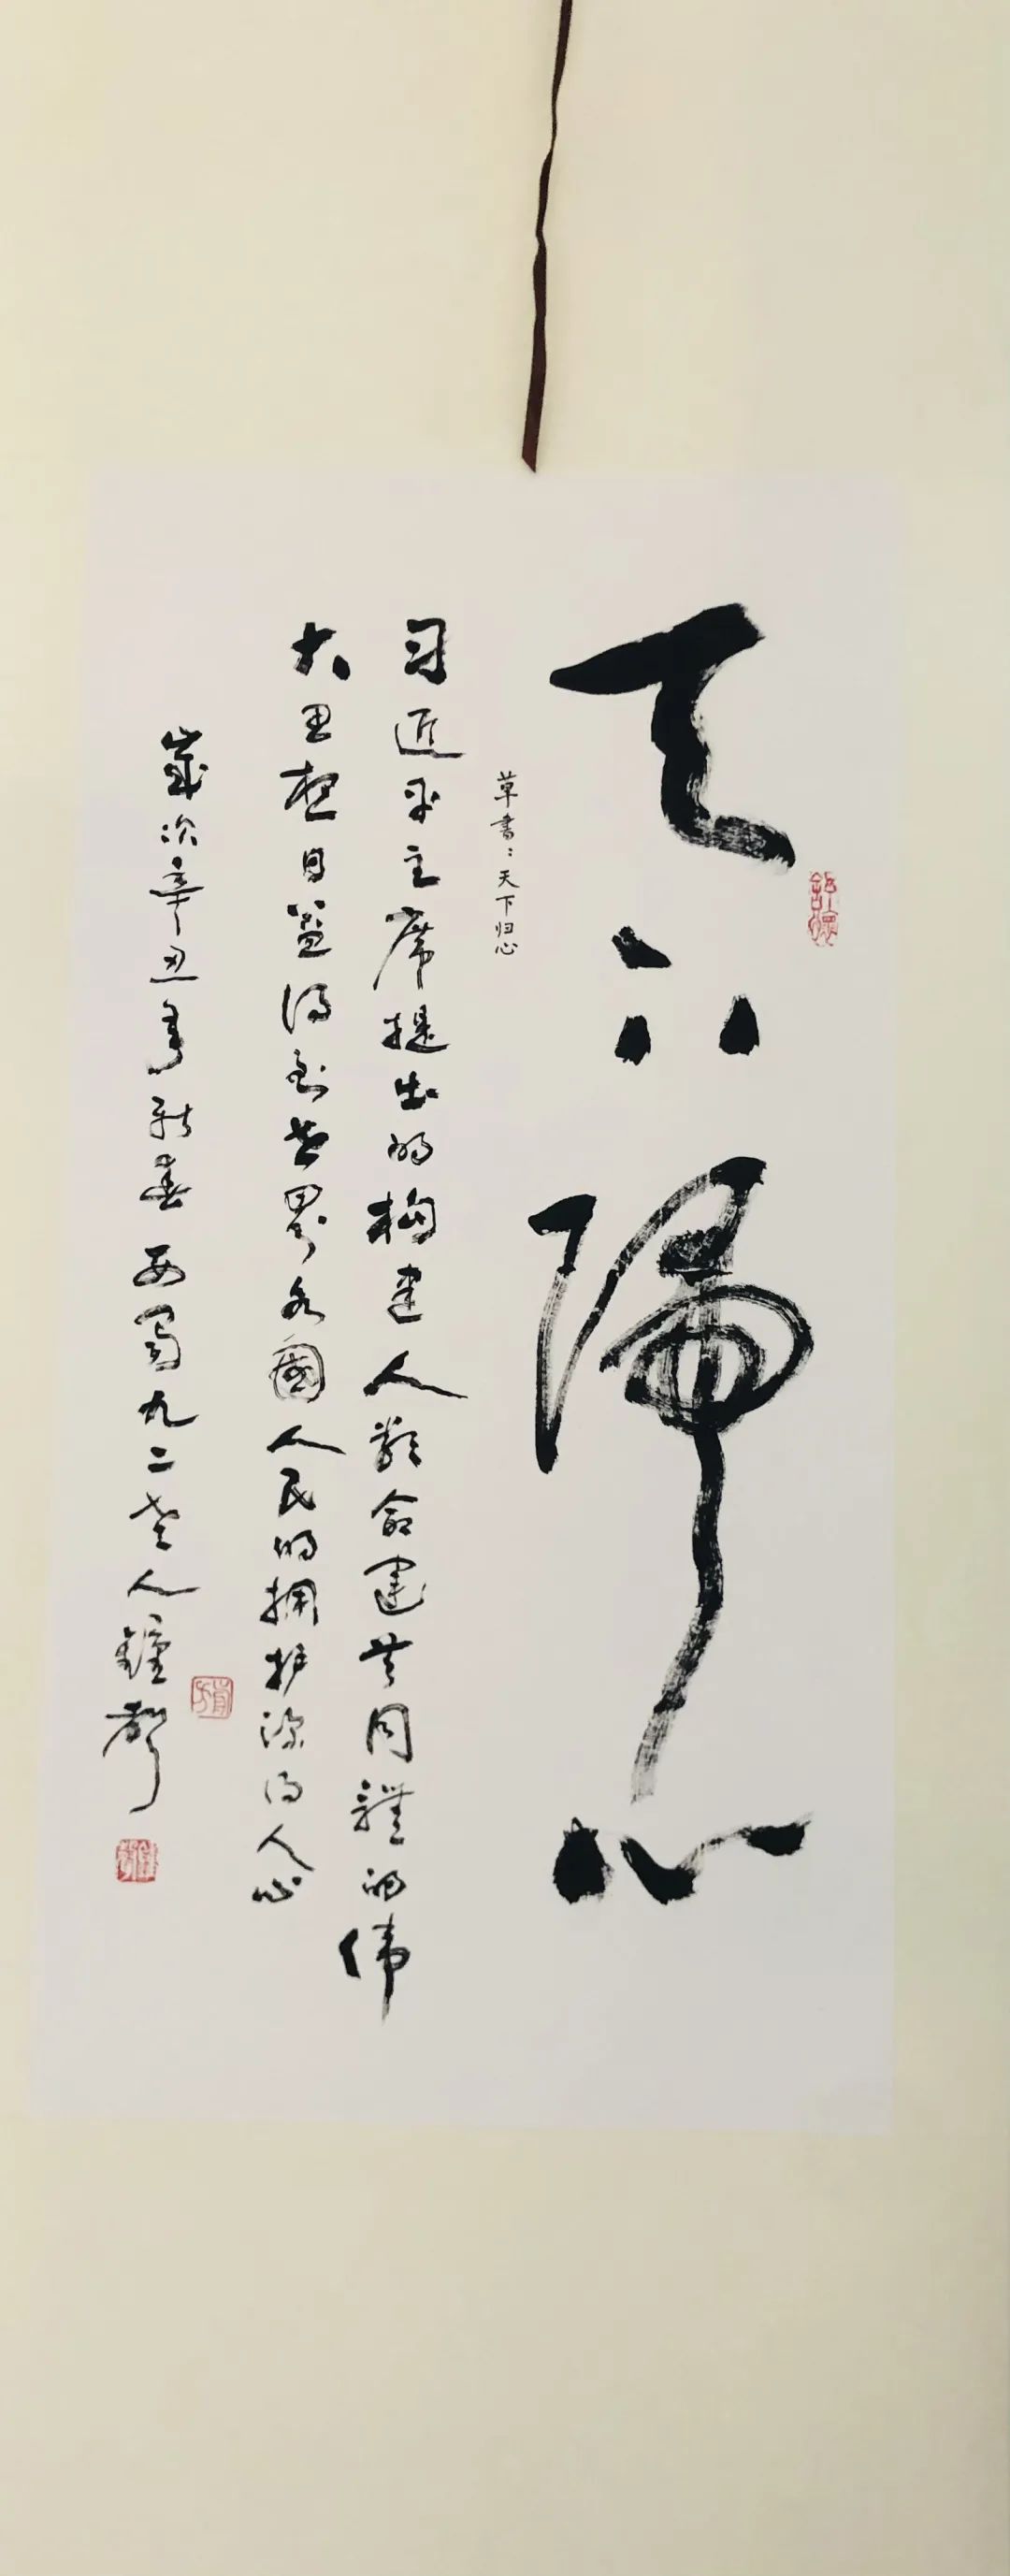 天下归心
草書：天下归心
习近平主席提出的构建人類命运共同體的伟
大思想日益得到世界各國人民的拥护深得人心
歲次辛丑年新春西蜀九二老人鐘聲